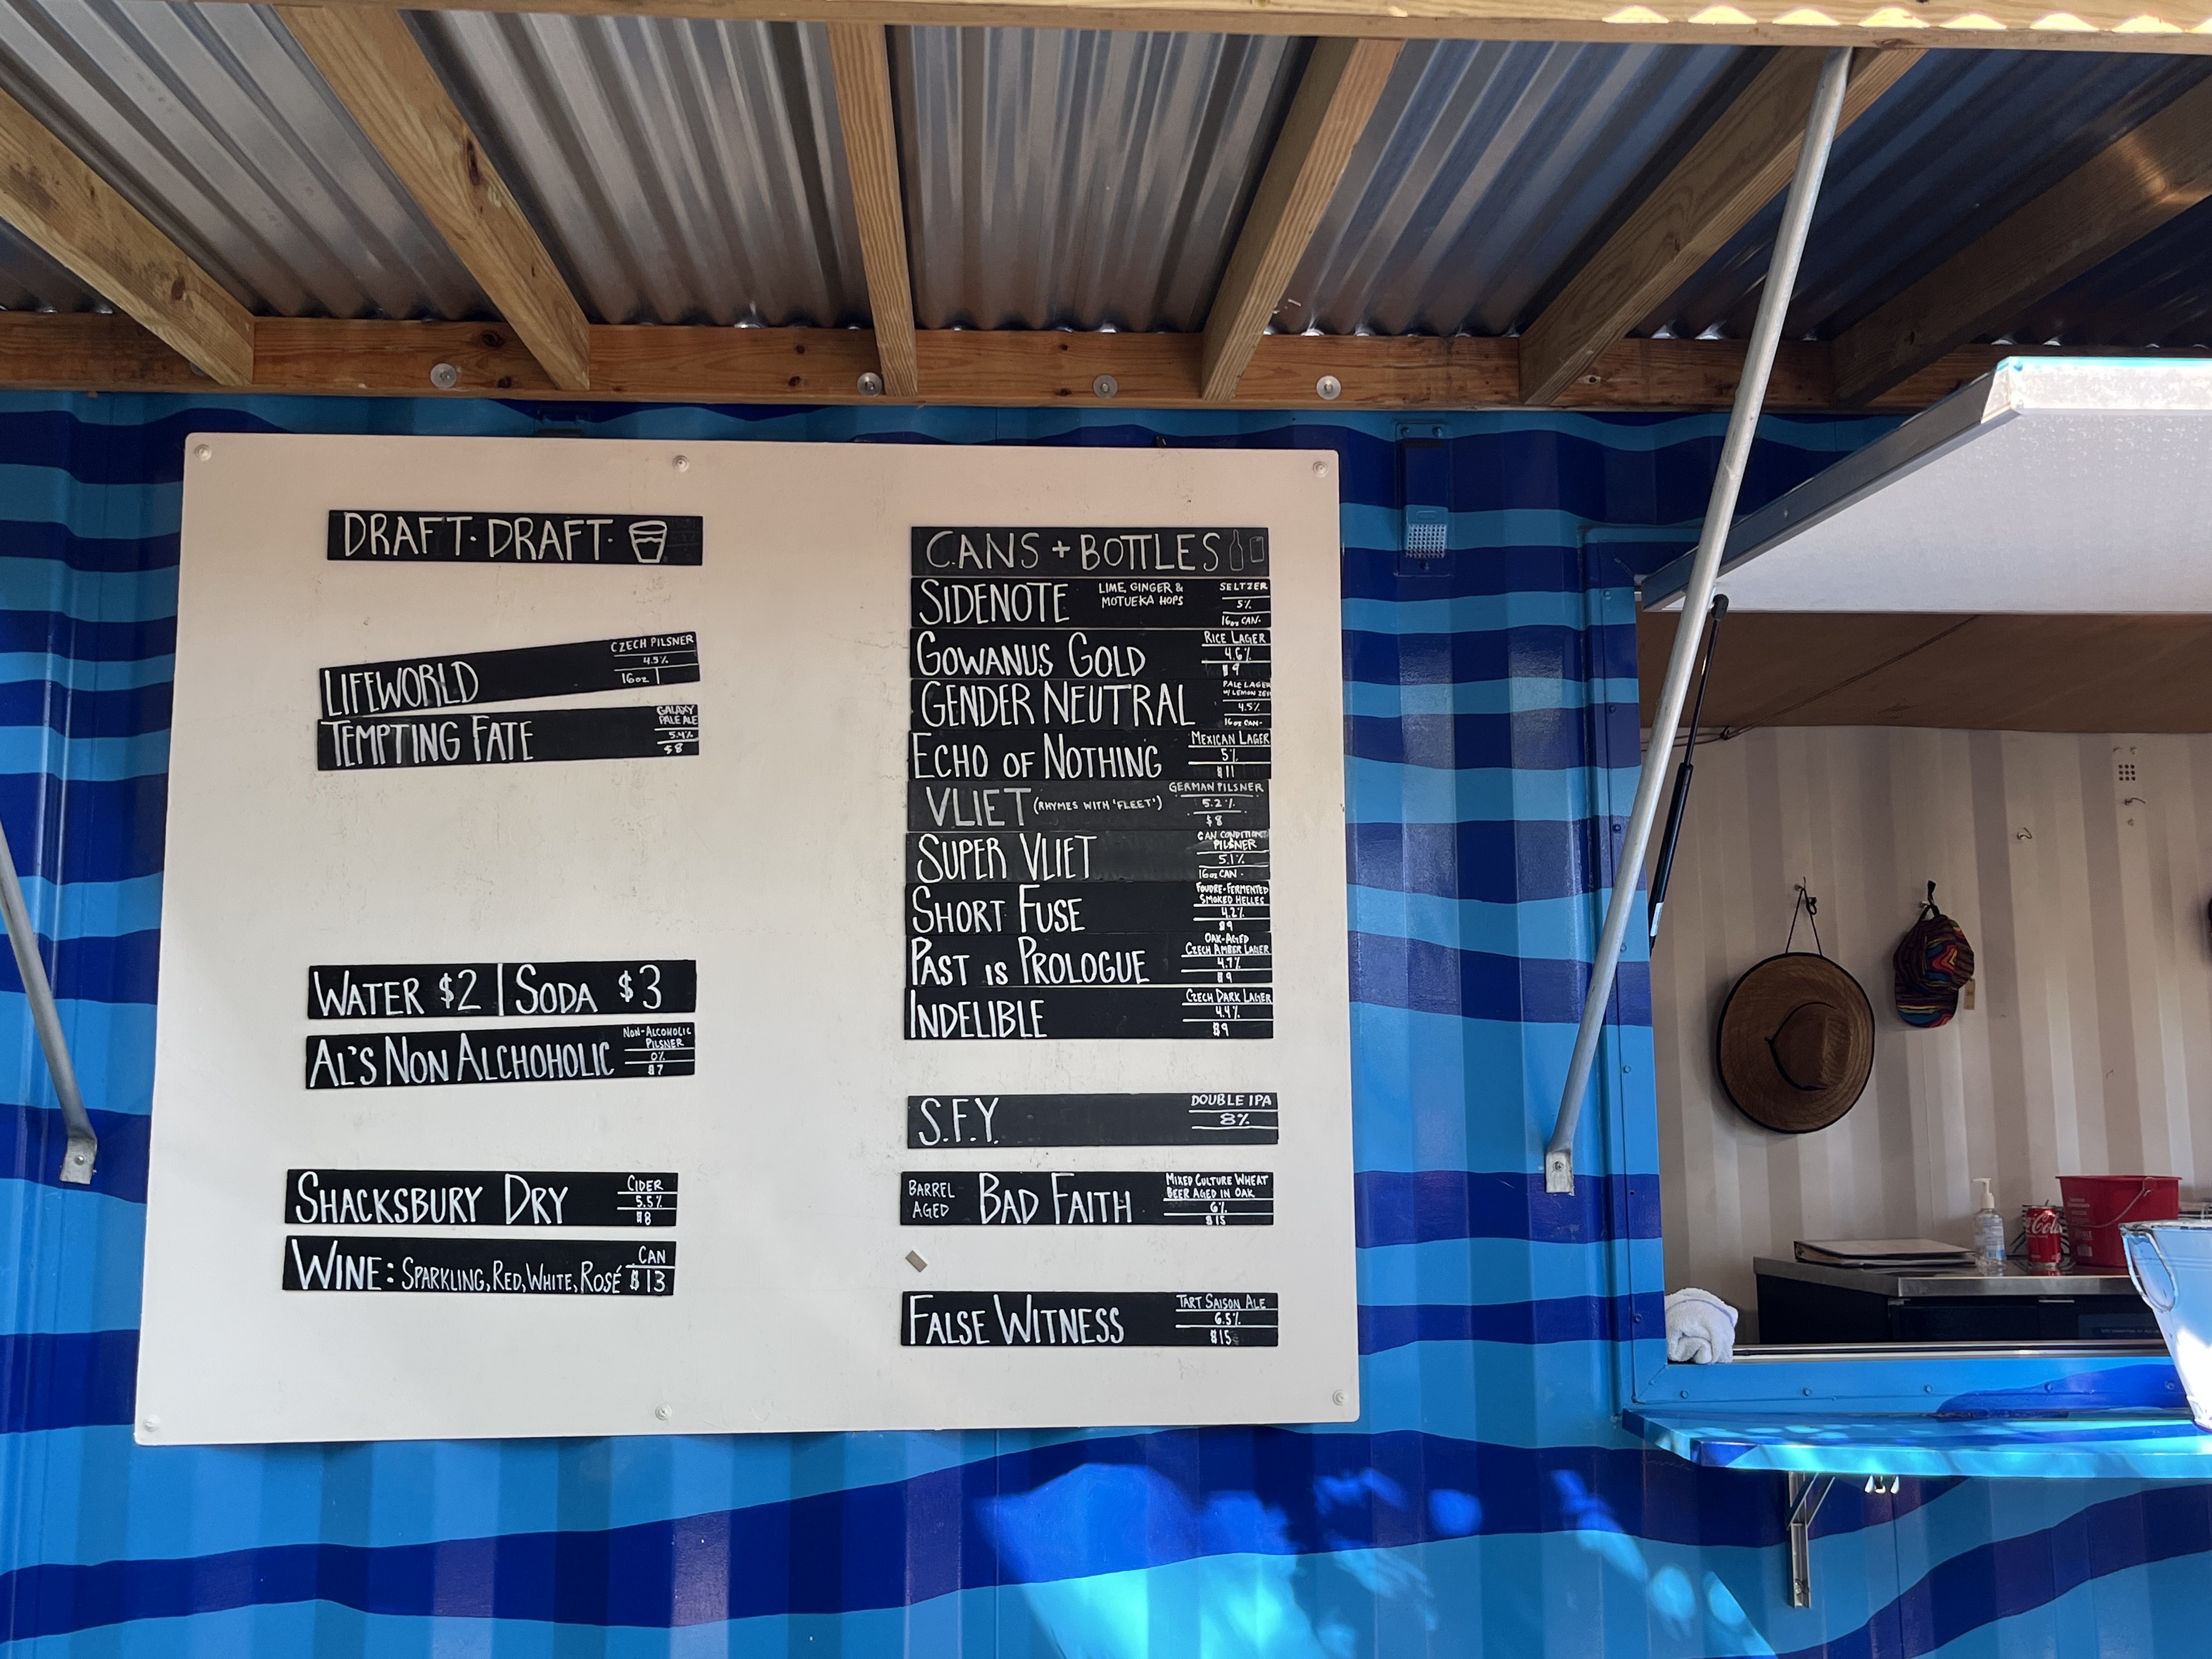 DRAFT · DRAFT ·
LIFEWORLD
CZECH PILSNER
4.5%
16oz
TEMPTING FATE
GALAXY
PALE ALE
5.4%
$8
WATER $2 | SODA $3
AL'S NON ALCHOHOLIC
NON-ALCOHOLIC
PILSNER
0%
$7
SHACKSBURY DRY
CIDER
5.5%
$8
WINE: SPARKLING, RED, WHITE, ROSÉ
CAN
$13
CANS + BOTTLES
SIDENOTE
LIME, GINGER &
MOTUEKA HOPS
SELTZER
5%
16oz CAN-
GOWANUS GOLD
RICE LAGER
4.6%
$9
GENDER NEUTRAL
PALE LAGER
W/ LEMON
4.5%
16oz CAN-
ECHO OF NOTHING
MEXICAN LAGER
5%
$11
VLIET (RHYMES WITH 'FLEET')
GERMAN PILSNER
5.2%
$8
SUPER VLIET
CAN CONDITIONED
PILSNER
5.1%
16oz CAN -
SHORT FUSE
FOUDRE-FERMENTED
SMOKED HELLES
4.2%
$9
PAST IS PROLOGUE
OAK-AGED
CZECH AMBER LAGER
4.7%
$9
INDELIBLE
CZECH DARK LAGER
4.4%
$9
S.F.Y.
DOUBLE IPA
8%
BARREL
AGED
BAD FAITH
MIXED CULTURE WHEAT
BEER AGED IN OAK
6%
$15
FALSE WITNESS
TART SAISON ALE
6.5%
$15